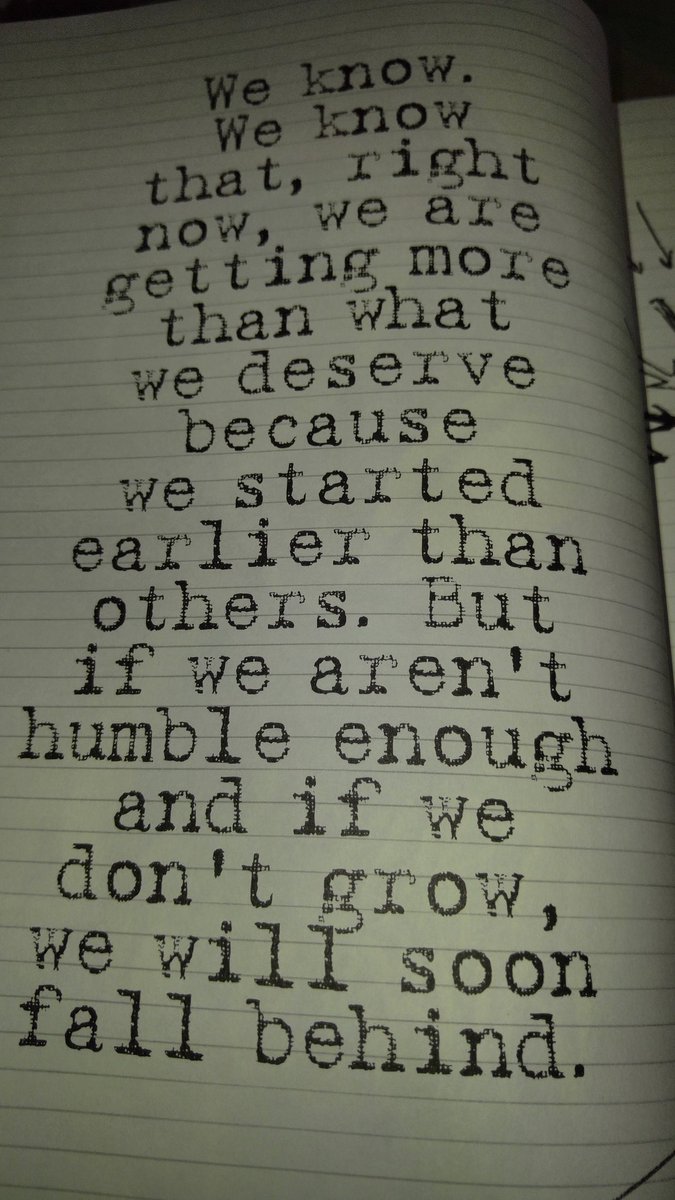 We know.
We know
that, right
now, we are
getting more
than what
we deserve
because
we started
earlier than
others. But
if we aren't
humble enough
and if we
don't grow,
we will soon
fall behind.